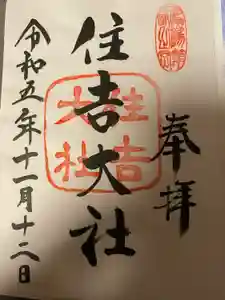 奉拝
住吉大社
住吉大社
令和五年十一月十二日